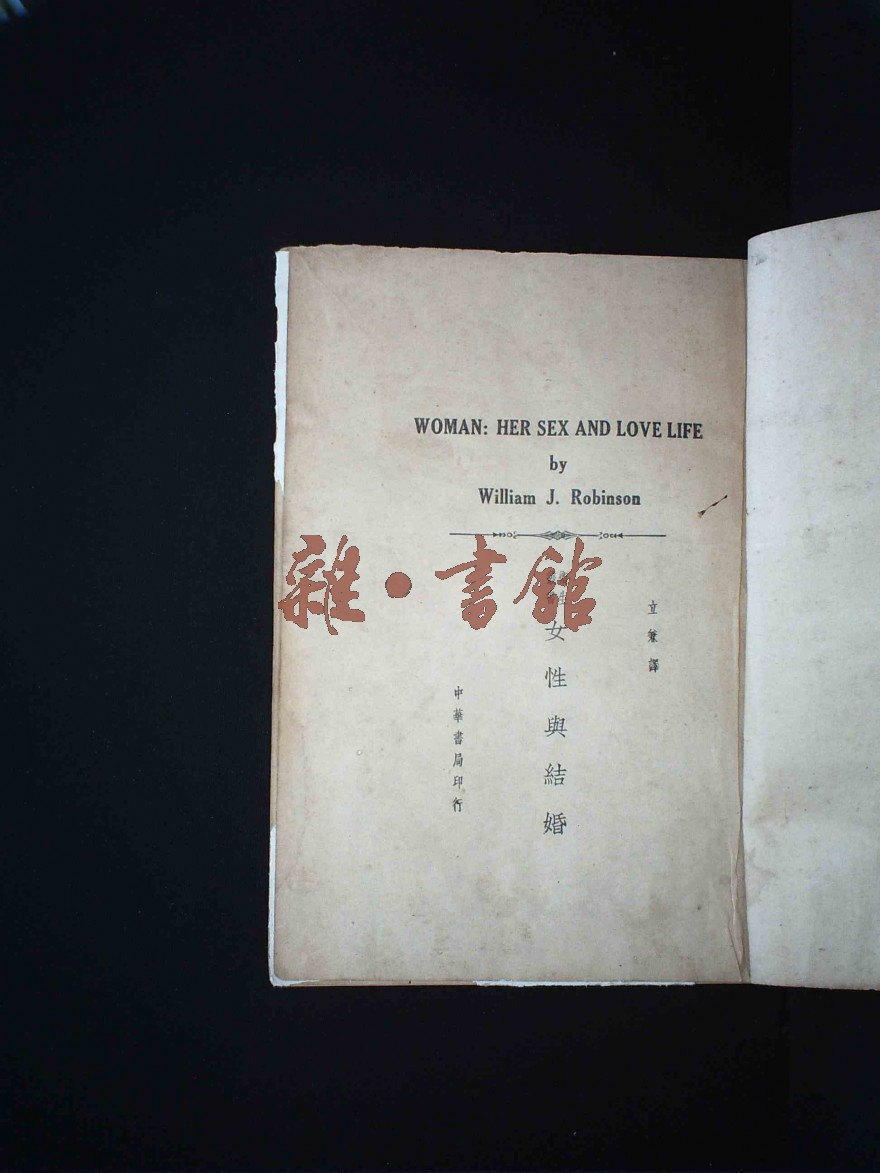 WOMAN: HER SEX AND LOVE LIFE
by
William J. Robinson
雜·書館
立兼譯
女性與結婚
中華書局印行